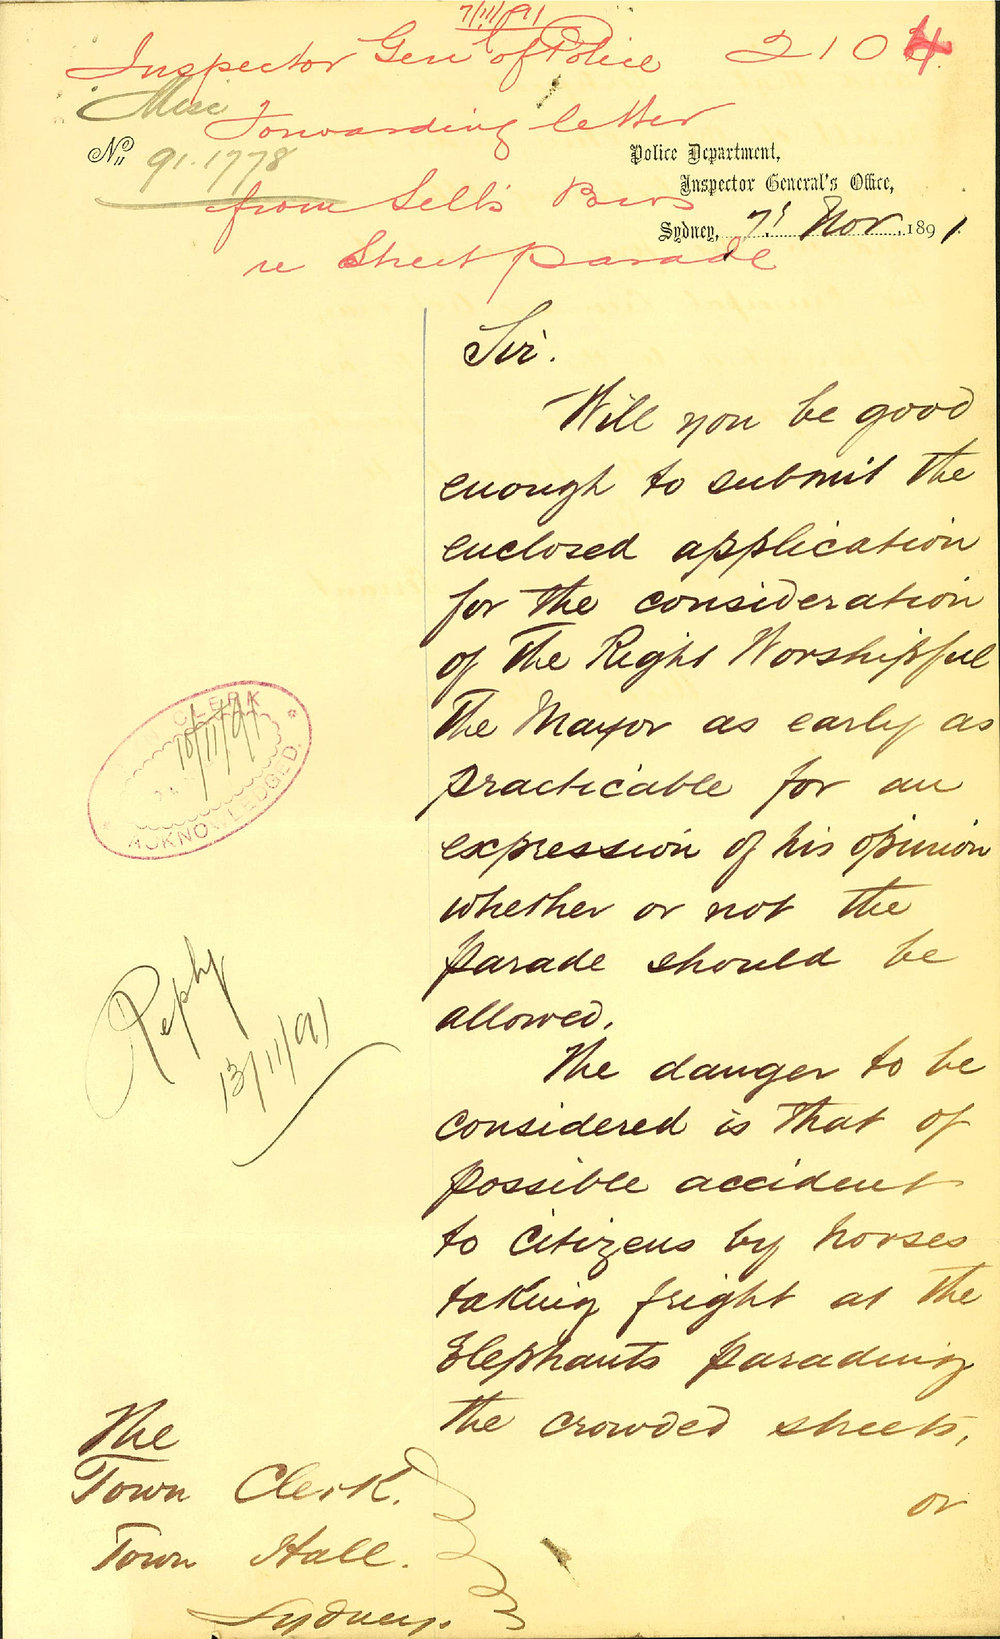 7/11/91
Inspector Genl of Police 2104
Misc
Forwarding letter
No 91.1778
Police Department,
Inspector General's Office,
from Sells Bros
Sydney, 7th Nov 1891.
re Street parade
Sir.
Will you be good
enough to submit the
enclosed application
for the consideration
of The Right Worshipful
The Mayor as early as
practicable for an
expression of his opinion
whether or not the
parade should be
allowed.
The danger to be
considered is that of
possible accident
to citizens by horses
taking fright at the
Elephants parading
the crowded streets,
or
CLERK
10/11/91
ACKNOWLEDGED.
Reply
13/11/91
The
Town Clerk.
Town Hall.
Sydney.